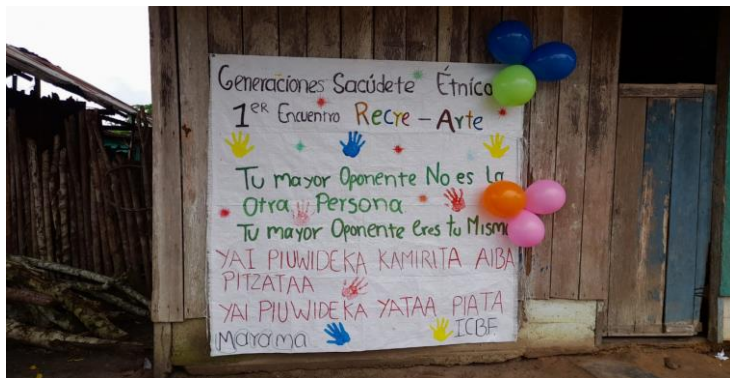 Generaciones Sacúdete Étnico
1ER Encuentro Recre - Arte
Tu mayor Oponente No es La
Otra Persona
Tu mayor Oponente eres tu Mismo
YAI PIUWIDEKA KAMIRITA AIBA
PITZATAA
YAI PIUWIDEKA YATAA PIATA
Marama ICBF